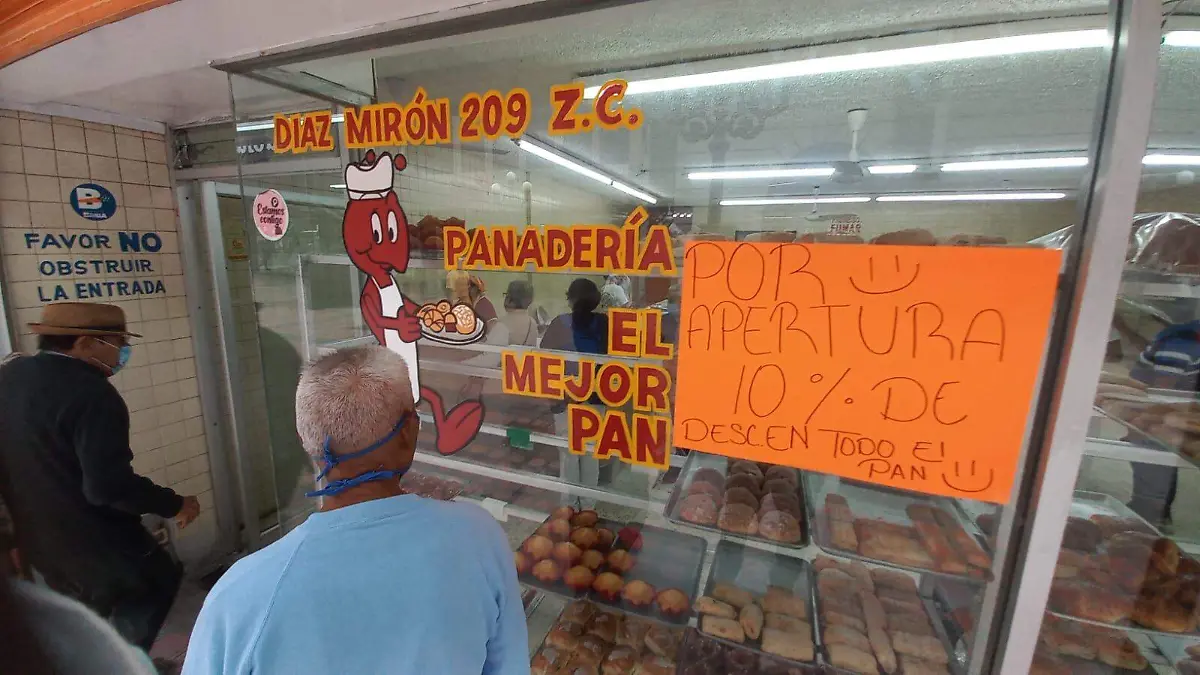 DIAZ MIRÓN 209 Z.C.
PANADERÍA
EL
MEJOR
PAN
POR
APERTURA
10 % DE
DESCEN TODO El
PAN
Estamos
contigo
B
FAVOR NO
OBSTRUIR
LA ENTRADA
FUMAR